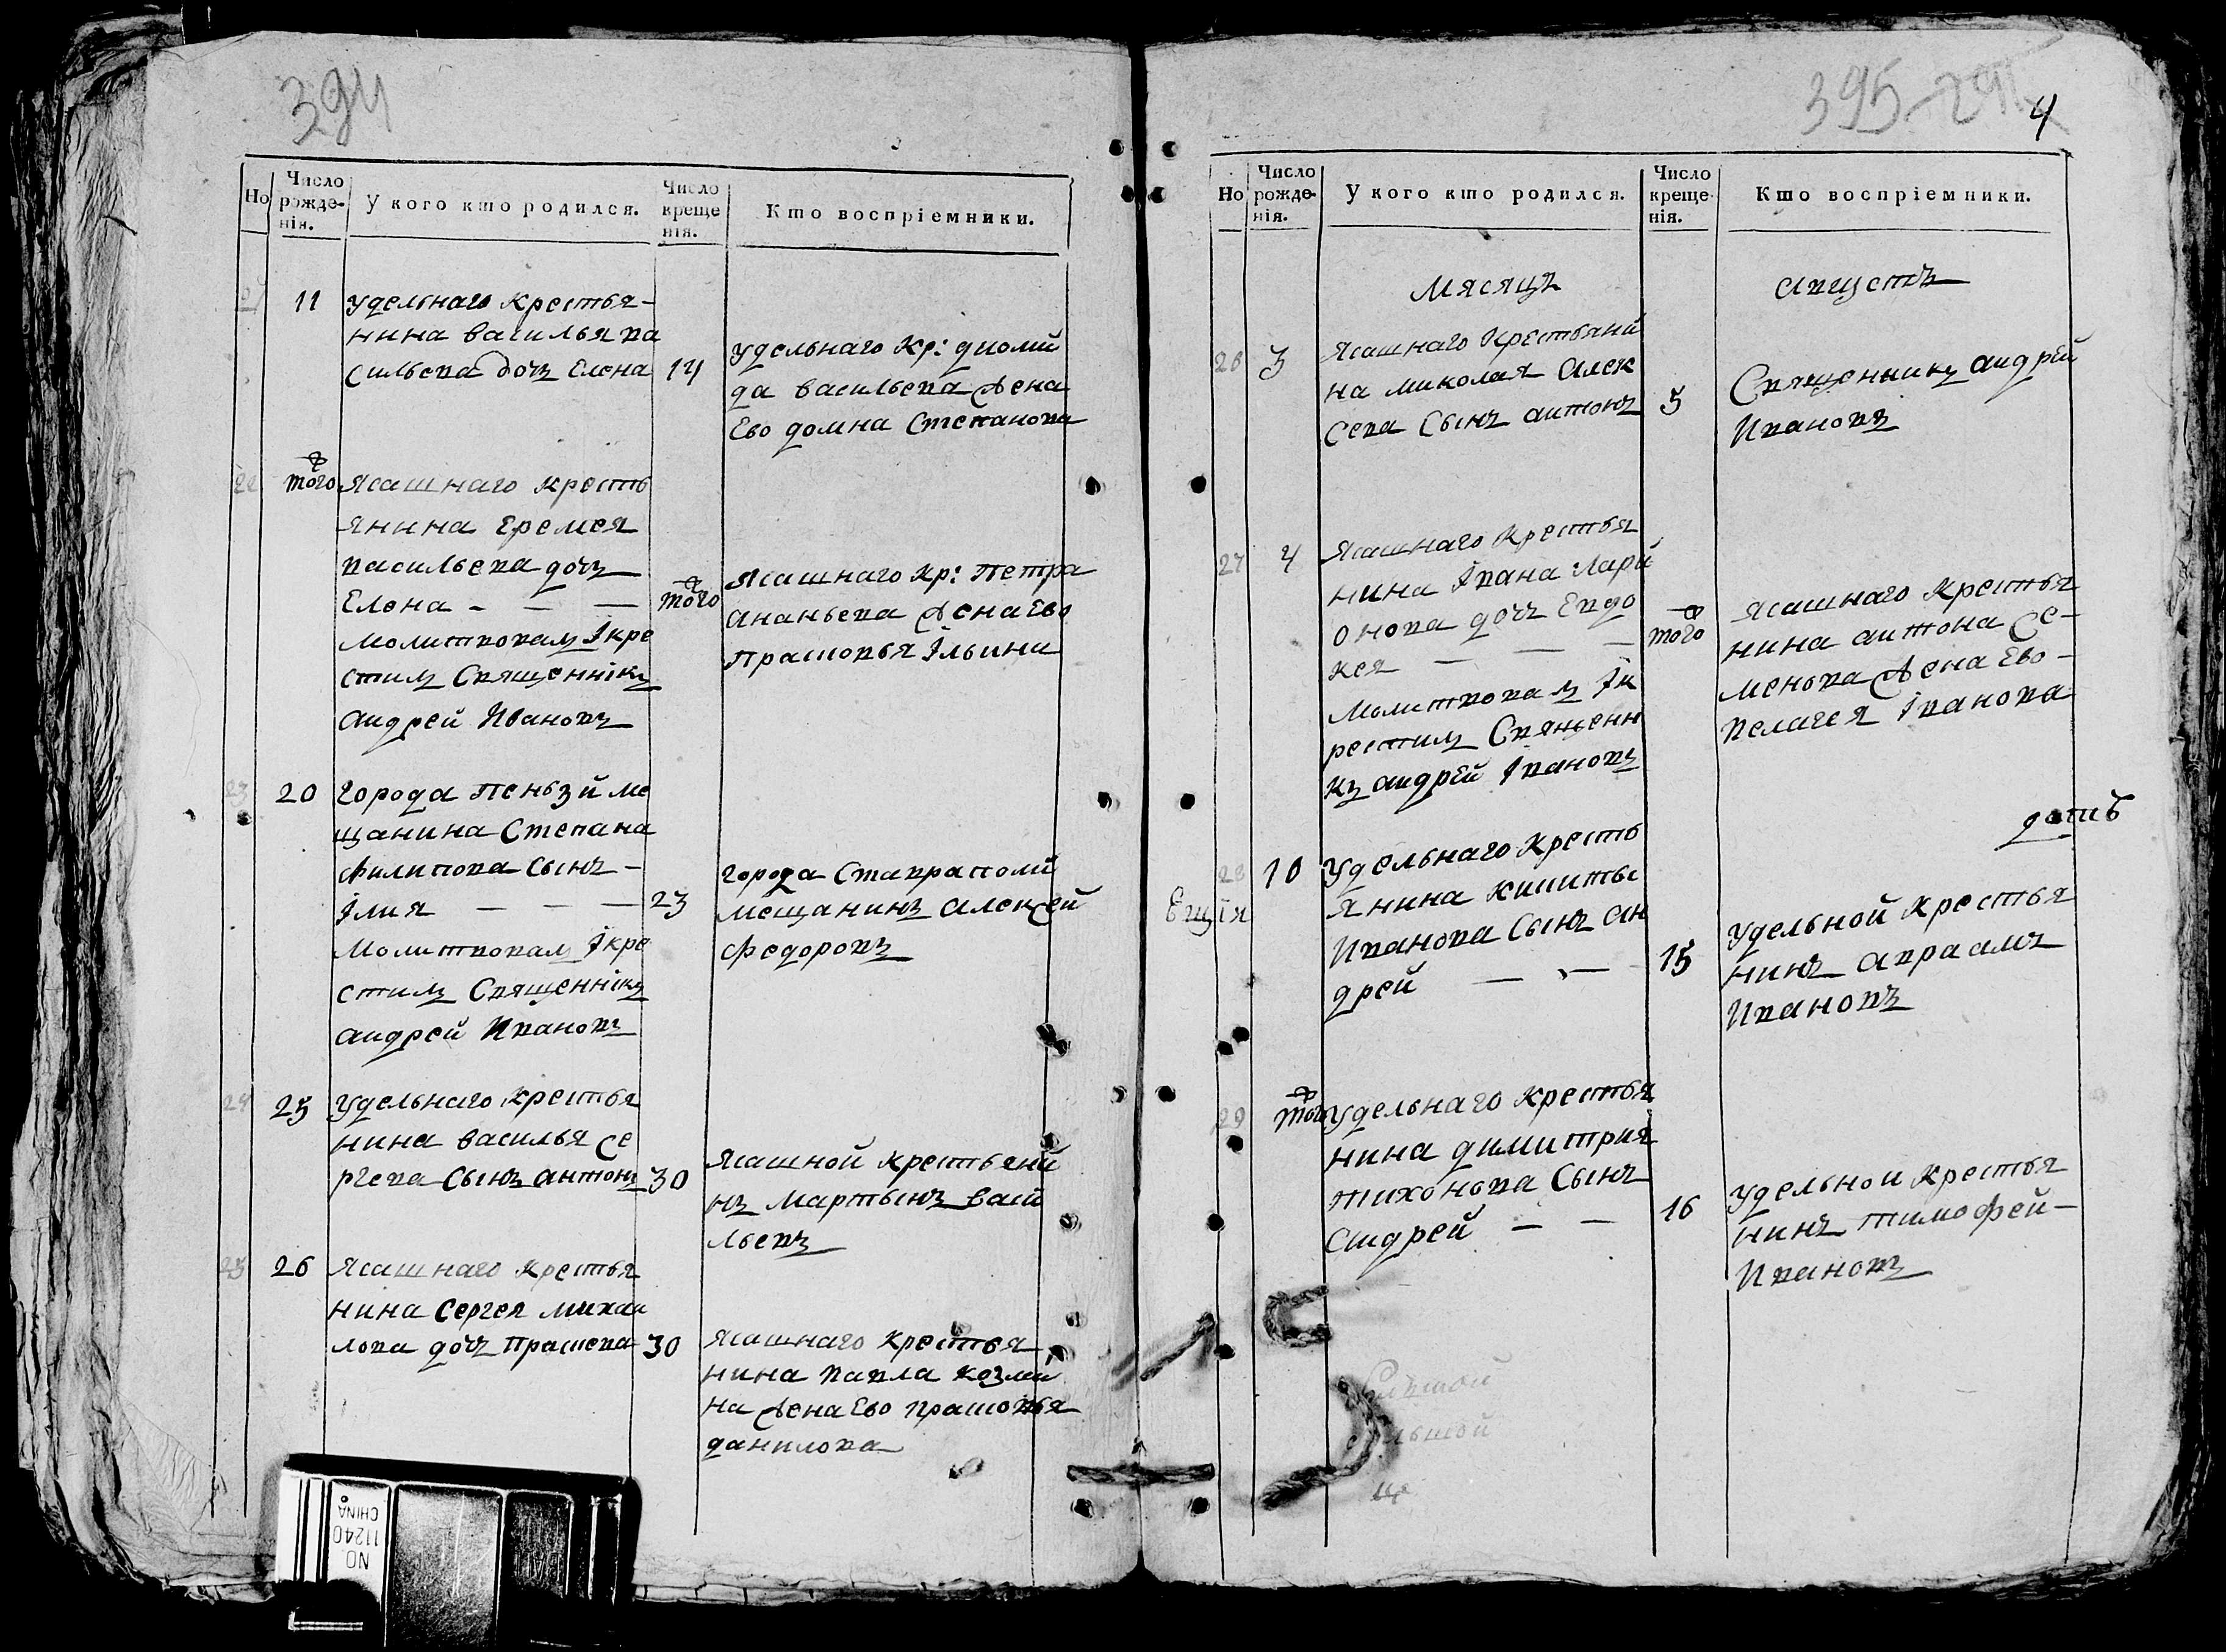 394
Но
Число рожденія.
У кого кто родился.
Число крещенія.
Кто воспріемники.
21
11
удельнаго крестья-
нина василья ва
сильева дочъ Елена
14
удельнаго кр: диоми
да васильева жена
Ево домна Степанова
22
того
Ясашнаго кресть
янина Еремея
васильева дочъ
Елена - — —
того
молитвовалъ Iкре
стилъ Священнiкъ
андрей Ивановъ
Ясашнаго кр: Петра
ананьева жена Ево
Прасковья Iльина
23
20
города Пеньзи ме
щанина Степана
филипова Сынъ -
Iлия — — —
23
Молитвовалъ Iкре
стилъ Священнiкъ
андрей Ивановъ
города Ставраполи
мещанинъ алексей
федоровъ
24
25
удельнаго крестья
нина василья Се
ргева Сынъ антонъ
30
Ясашной крестьяни
нъ мартынъ васи
льевъ
25
26
Ясашнаго крестья
нина Сергея михаи
лова дочъ Прасковa
30
Ясашнаго крестья
нина павла козми
на жена Ево прасковья
данилова
395
4
Но
Число рожденія.
У кого кто родился.
Число крещенія.
Кто воспріемники.
Мясяцъ
августъ
26
3
Ясашнаго Крестьяни
на миколая Алек
сева Сынъ антонъ
5
Священникъ андрей
Ивановъ
27
4
Ясашнаго крестья
нина Iвана Лари
онова дочъ Евдо
кея — — —
того
Молитвовалъ Iк
рестилъ Священн
къ андрей Iвановъ
Ясашнаго крестья
нина антона Се-
менова жена Ево -
пелагея Iванова
28
10
Удельнаго кресть
янина никиты
Иванова Сынъ Ан
дрей — —
15
удельной крестья
нинъ авраамъ
Ивановъ
29
того
удельнаго крестья
нина димитрия
тихонова Сынъ
андрей — —
16
удельной крестья
нинъ тимофей -
Ивановъ
NO.
11240
CHINA